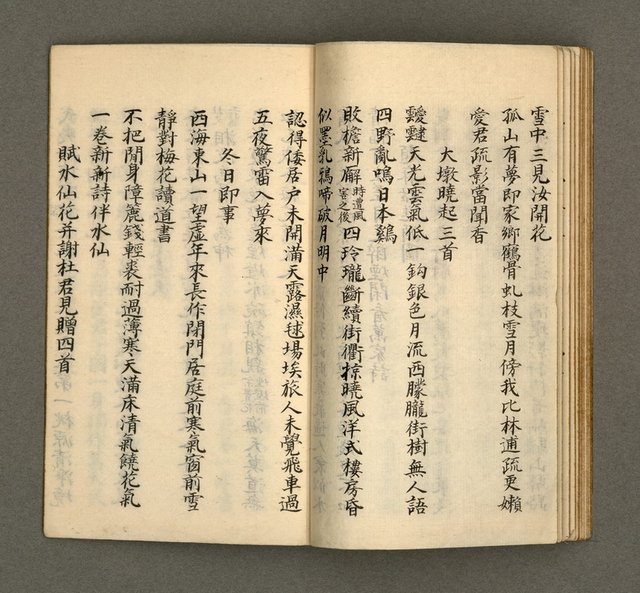 雪中三見汝開花
孤山有夢即家鄉鶴骨虬枝雪月傍我比林逋疏更嬾
愛君疏影當聞香
大墩曉起三首
靉靆天光雲氣低一鈎銀色月流西朦朧街樹無人語
四野亂鳴日本鷄
敗檐新廨時遭風害之後四玲瓏斷續街衢掠曉風洋式樓房昏
似墨乳鴉啼破月明中
認得倭居户未開滿天露濕毬場埃旅人未覺飛車過
五夜驚雷入夢來
冬日即事
西海東山一望虛年來長作閉門居庭前寒氣窗前雪
靜對梅花讀道書
不把閒身障簏錢輕裘耐過薄寒天滿床清氣饒花氣
一卷新新詩伴水仙
賦水仙花并謝杜君見贈四首